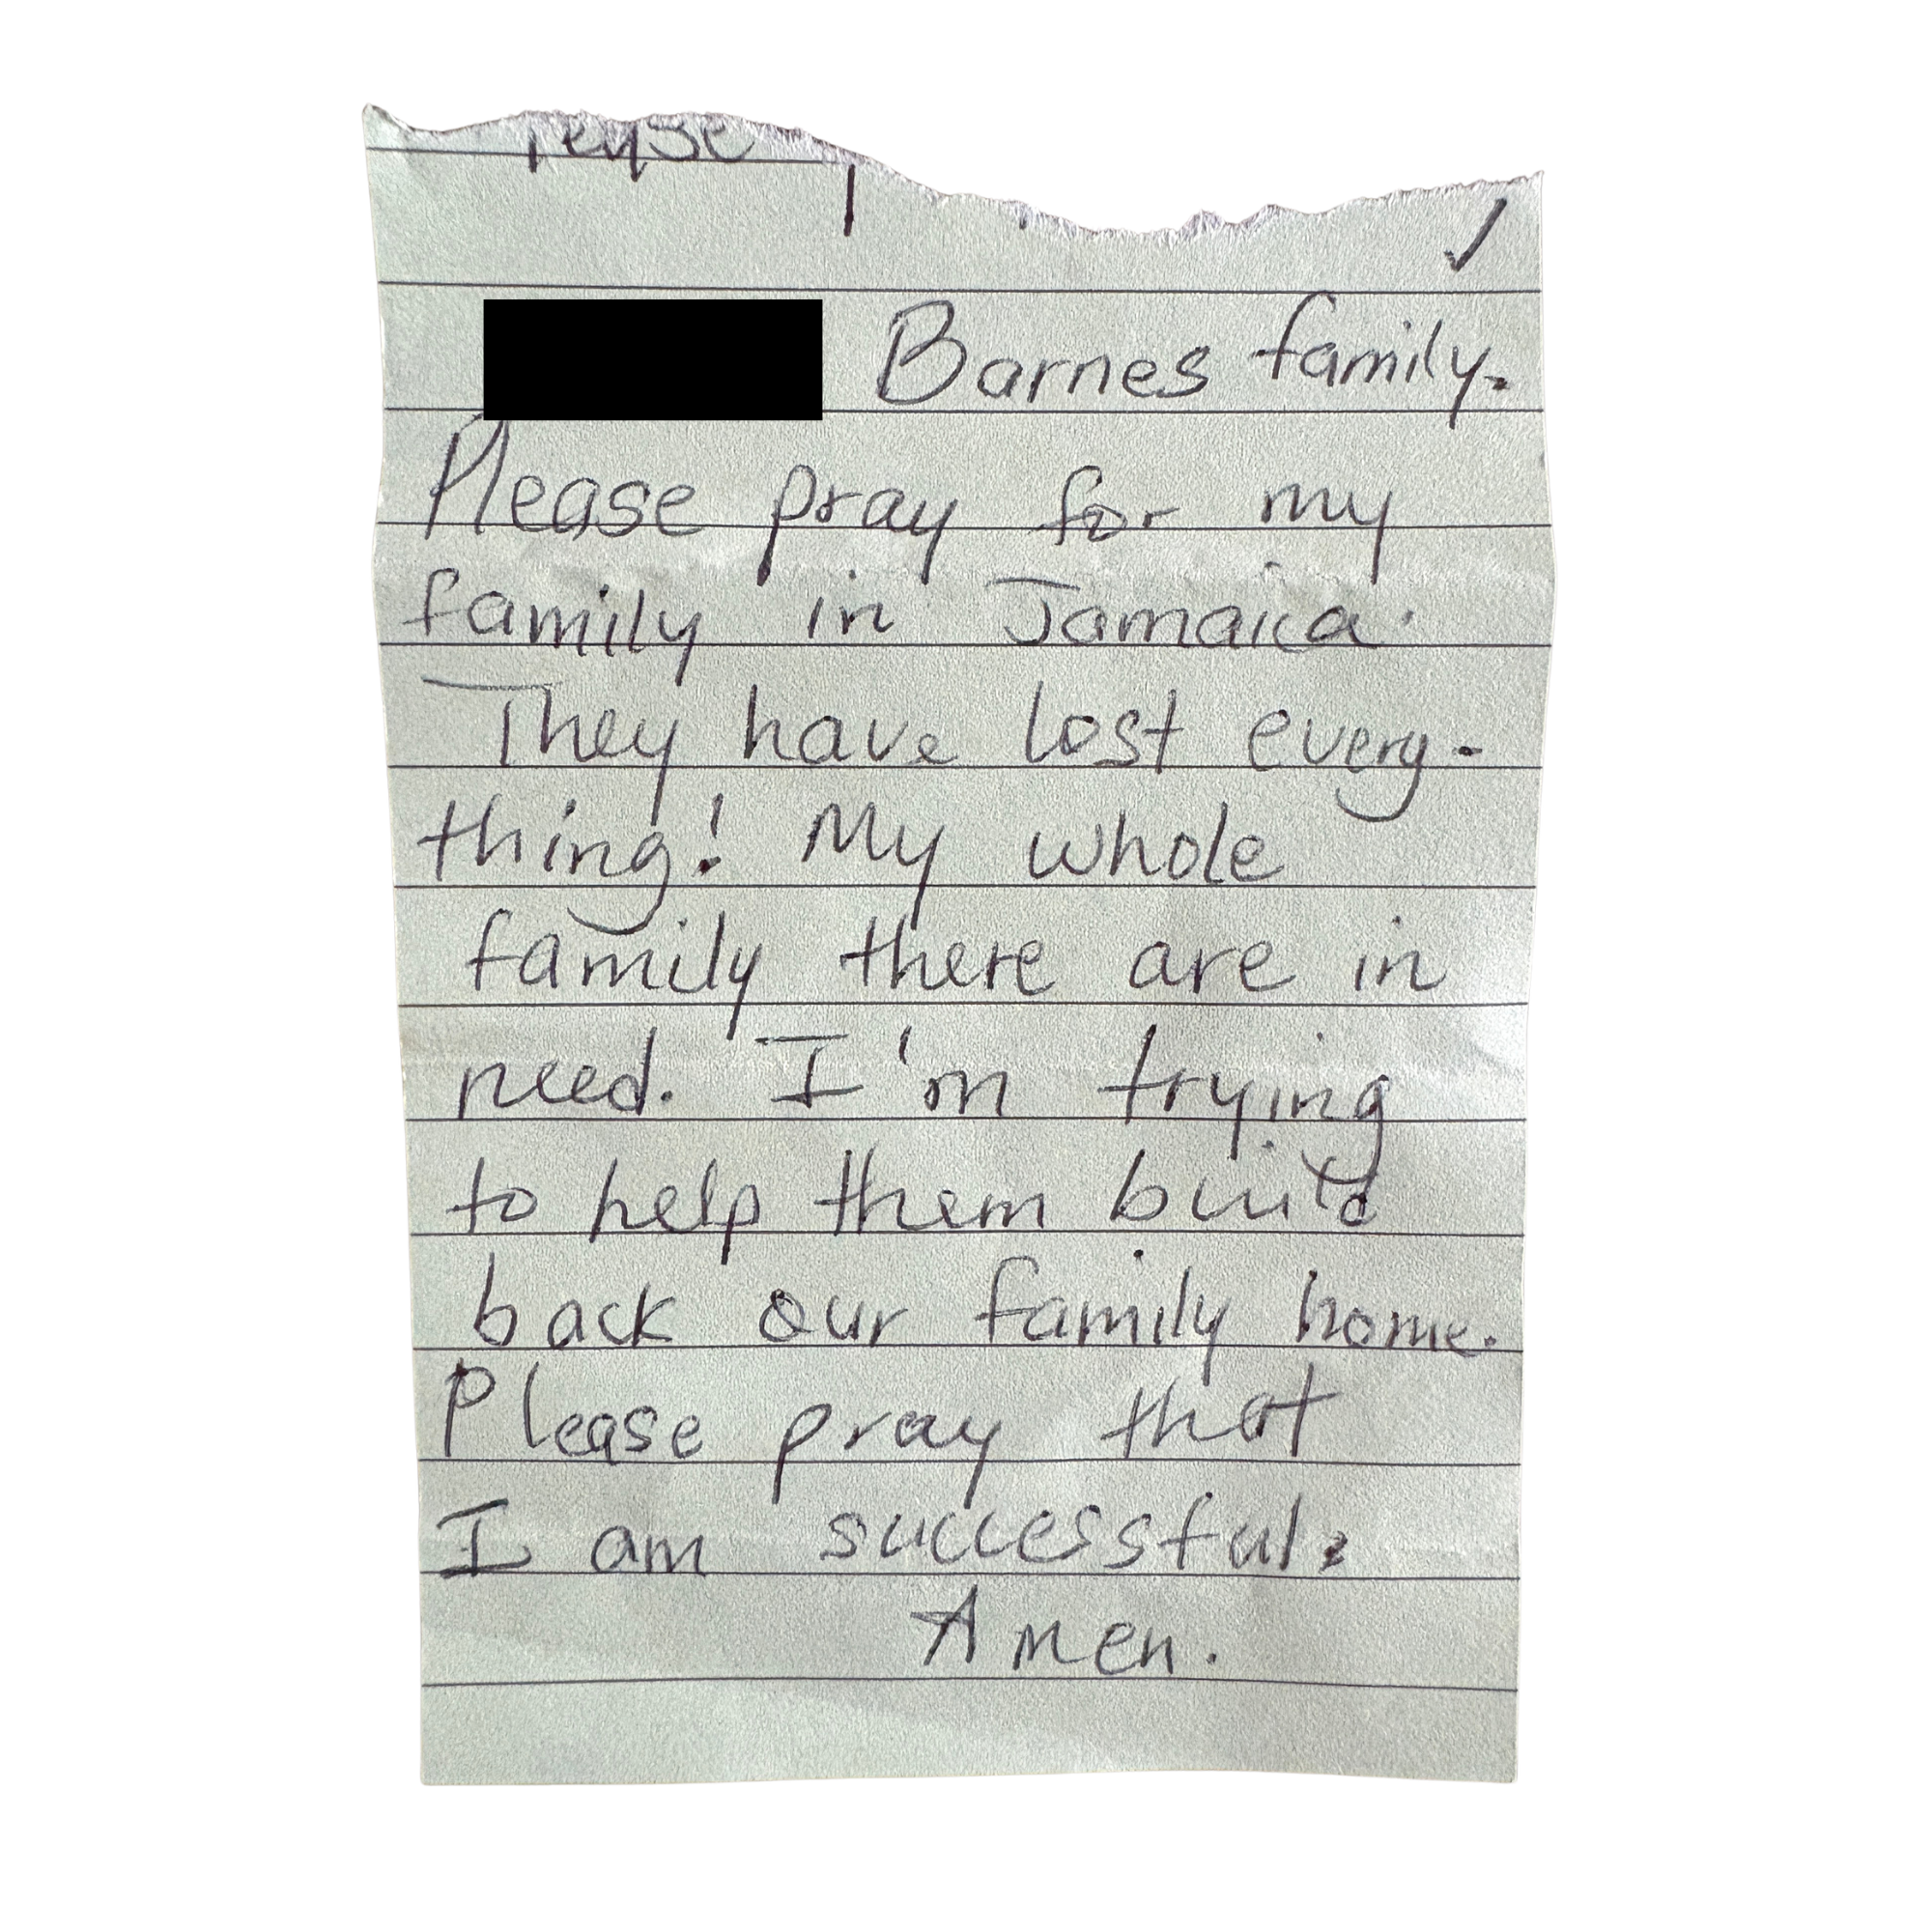 Barnes family.
Please pray for my
family in Jamaica.
They have lost every-
thing! My whole
family there are in
need. I'm trying
to help them build
back our family home.
Please pray that
I am successful.
Amen.